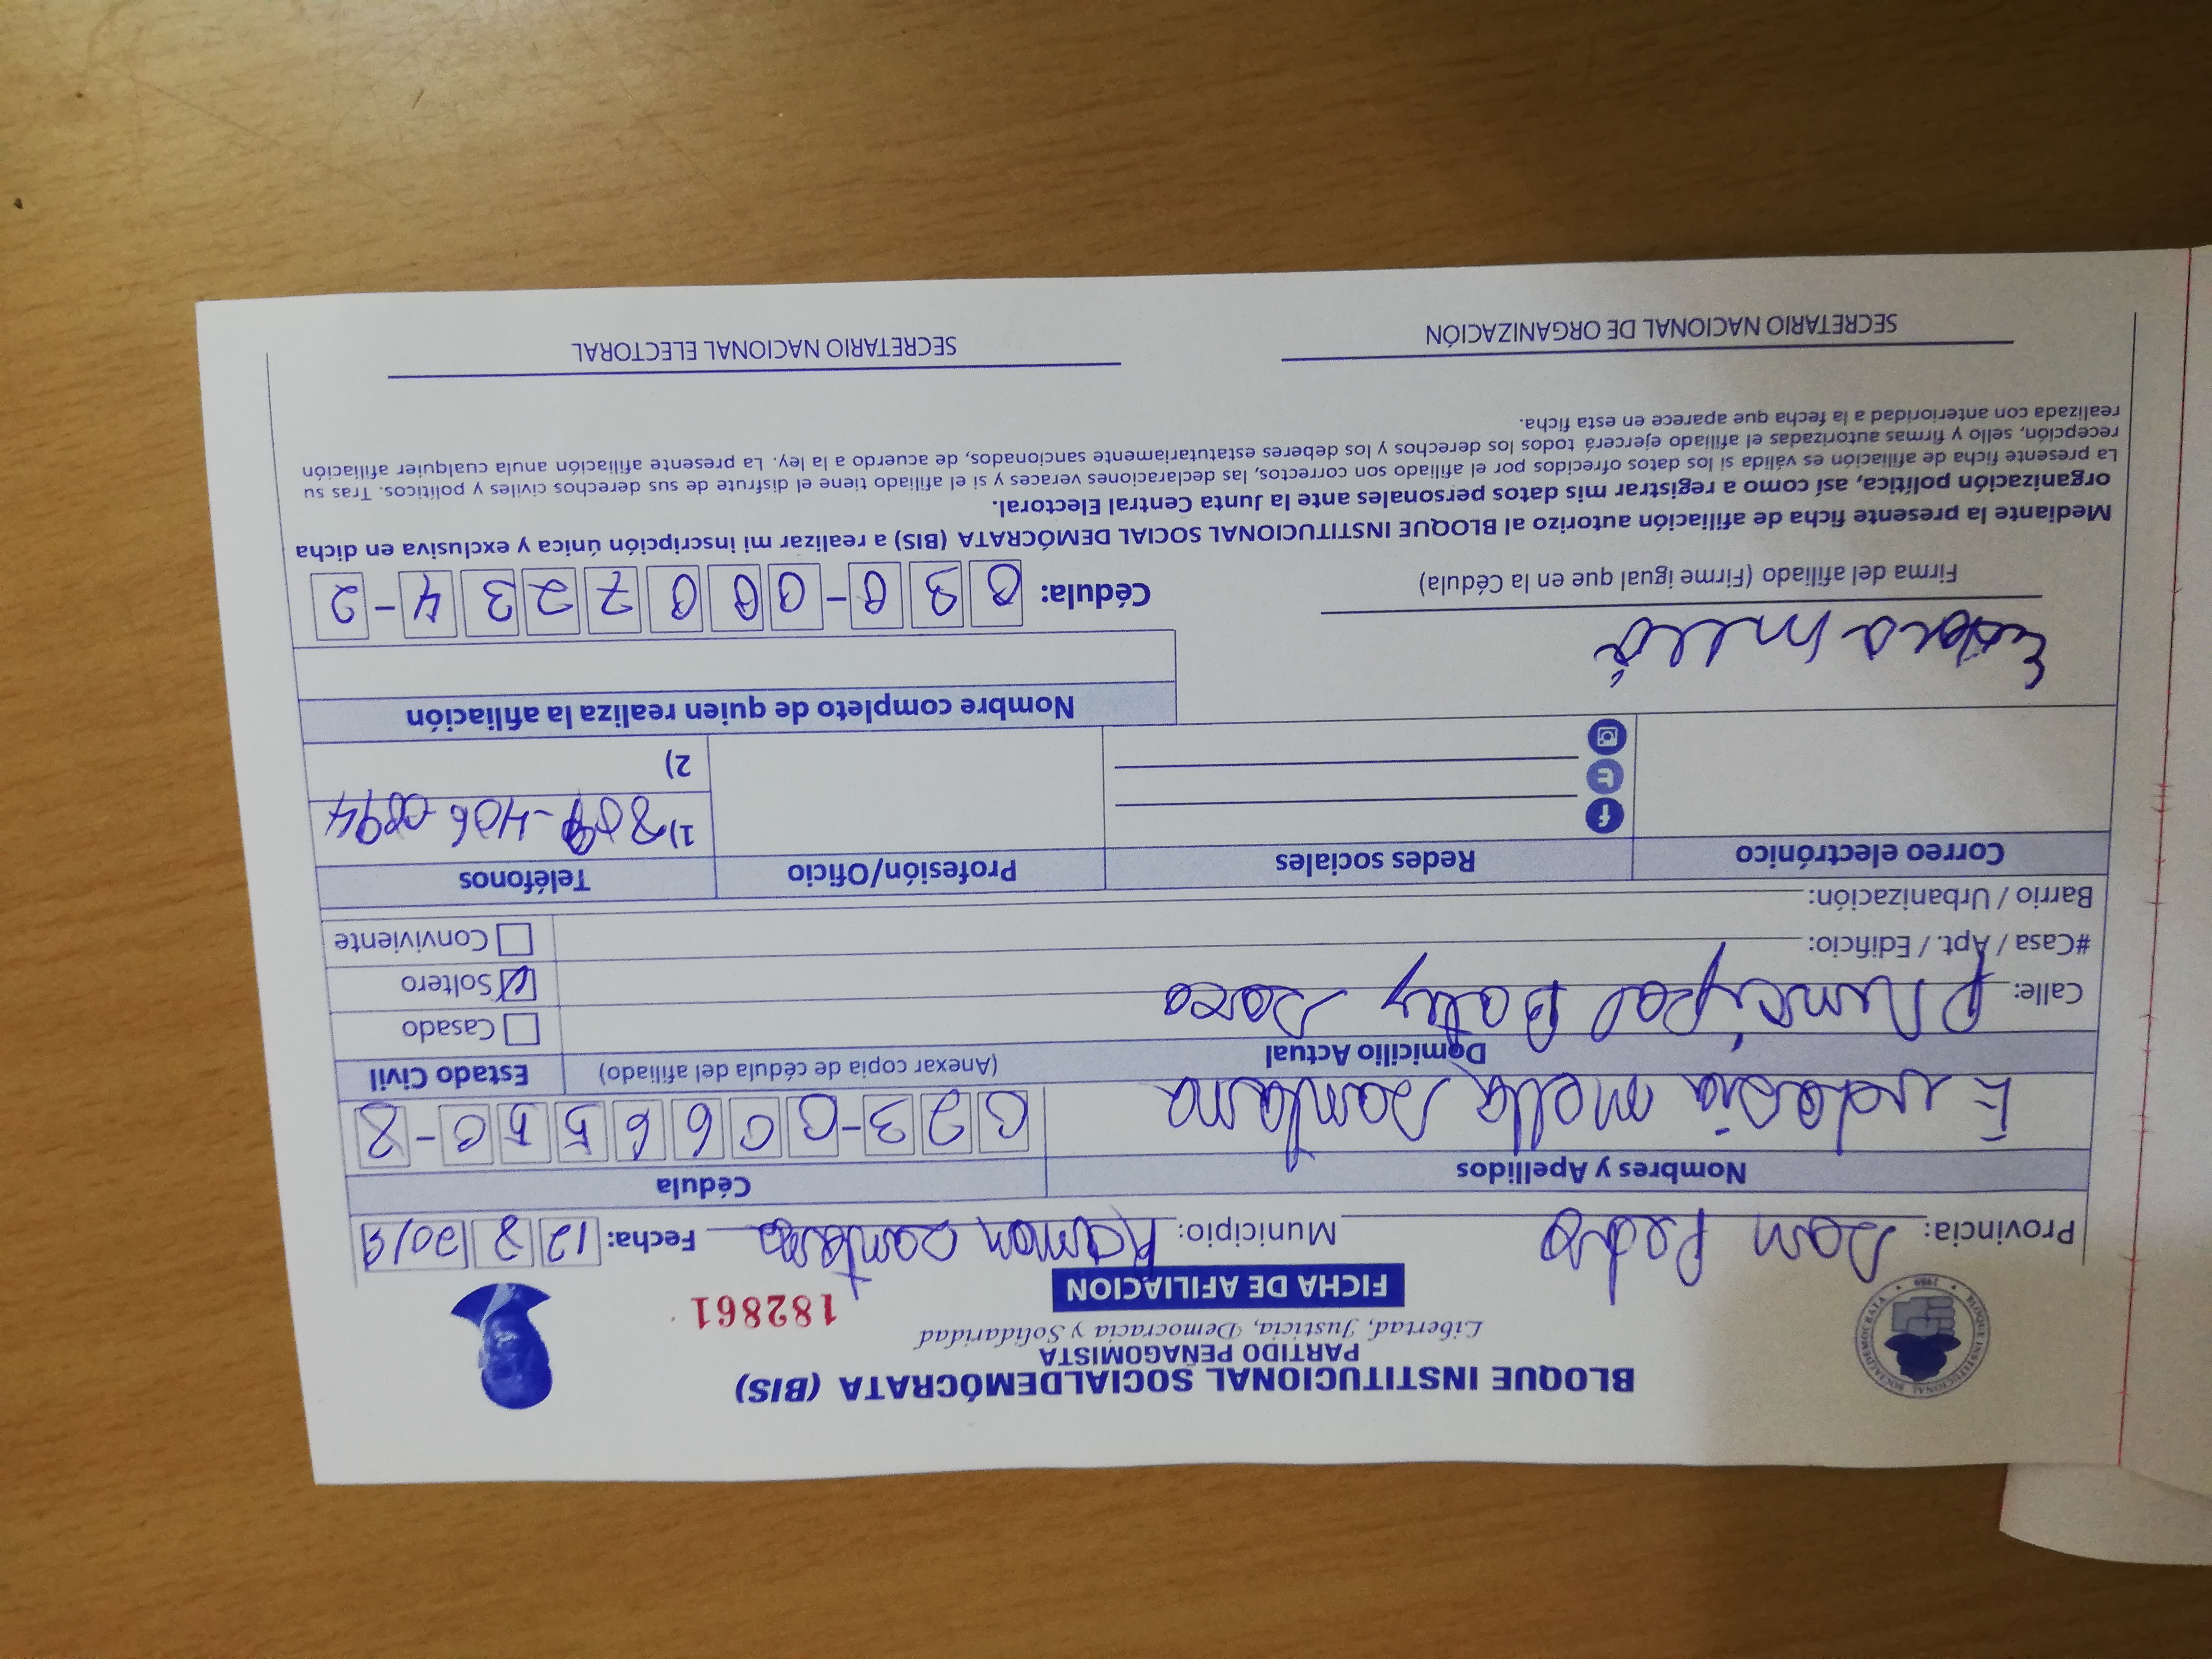 BLOQUE INSTITUCIONAL SOCIALDEMÓCRATA (BIS)
PARTIDO PEÑAGOMISTA
Libertad, Justicia, Democracia y Solidaridad
FICHA DE AFILIACION
182861
BLOQUE INSTITUCIONAL SOCIALDEMOCRATA 1989
Provincia: San Pedro Municipio: Ramon Santana Fecha: 12 8 2019
Nombres y Apellidos Cédula
mella Santana 023-0066550-8
Domicilio Actual (Anexar copia de cédula del afiliado) Estado Civil
Calle: Principal Batey Casado
#Casa / Apt. / Edificio: Soltero
Barrio / Urbanización: Conviviente
Correo electrónico Redes sociales Profesión/Oficio Teléfonos
1) 406
2)
Nombre completo de quien realiza la afiliación
Firma del afiliado (Firme igual que en la Cédula) Cédula: 030-0007234-2
Mediante la presente ficha de afiliación autorizo al BLOQUE INSTITUCIONAL SOCIAL DEMÓCRATA (BIS) a realizar mi inscripción única y exclusiva en dicha
organización política, así como a registrar mis datos personales ante la Junta Central Electoral.
La presente ficha de afiliación es válida si los datos ofrecidos por el afiliado son correctos, las declaraciones veraces y si el afiliado tiene el disfrute de sus derechos civiles y políticos. Tras su
recepción, sello y firmas autorizadas el afiliado ejercerá todos los derechos y los deberes estatutariamente sancionados, de acuerdo a la ley. La presente afiliación anula cualquier afiliación
realizada con anterioridad a la fecha que aparece en esta ficha.
SECRETARIO NACIONAL DE ORGANIZACIÓN SECRETARIO NACIONAL ELECTORAL